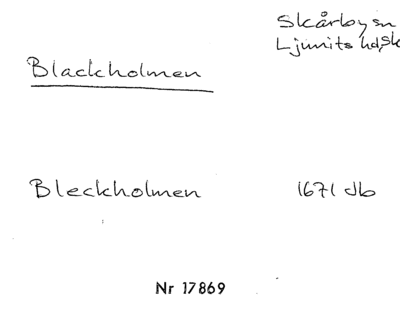 Skårby sn
Ljunits hd, Sk
Blackholmen
Bleckholmen 1671 Jb
Nr 17869